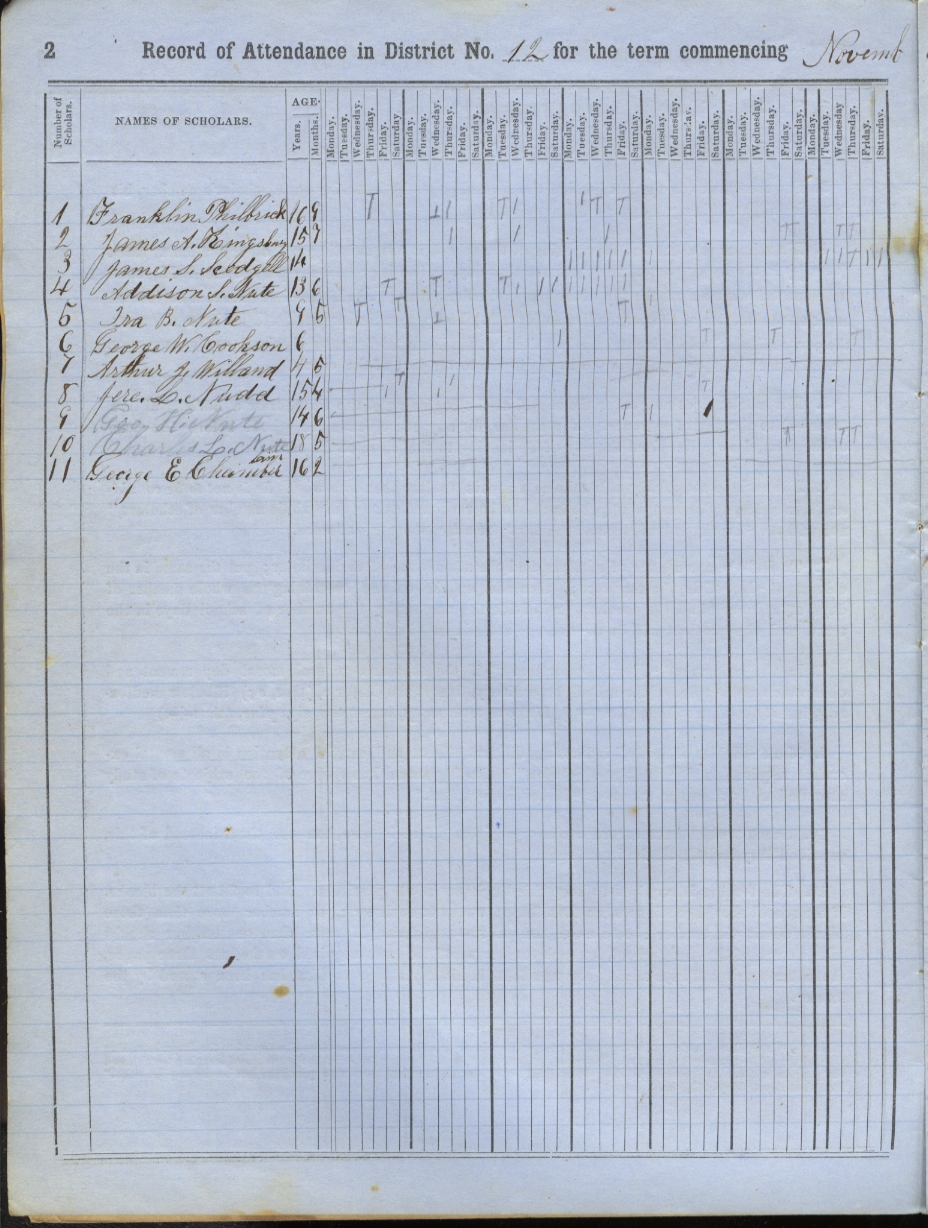 2 Record of Attendance in District No. 12 for the term commencing Novemb
Number of Scholars. NAMES OF SCHOLARS. AGE. Years. Months. Monday. Tuesday. Wednesday. Thursday. Friday. Saturday Monday. Tuesday. Wednesday. Thursday. Friday. Saturday. Monday. Tuesday. Wednesday. Thursday. Friday. Saturday. Monday. Tuesday. Wednesday. Thursday. Friday. Saturday. Monday. Tuesday. Wednesday. Thursday. Friday. Saturday. Monday. Tuesday. Wednesday. Thursday. Friday. Saturday. Monday. Tuesday. Wednesday Thursday Friday Saturday.
1 Franklin Philbrick 16 9
2 James A. Kingsbury 15 7
3 James S. 14
4 Addison S. Nute 13 6
5 Ira B. Nute 9 5
6 George W. Cookson 6
7 Arthur J. Willand 4 5
8 Jere. L. Nudd 15 4
9 Geo. H. Nute 14 6
10 Charles L. Nute 18 5
11 George E Chamberlain 16 2